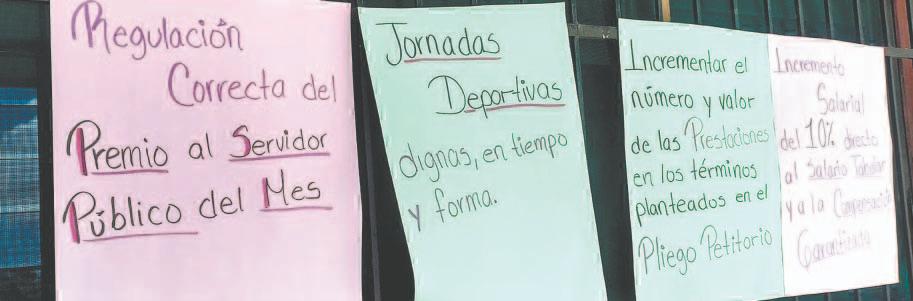 Regulación
Correcta del
Premio al Servidor
Público del Mes
Jornadas
Deportivas
dignas, en tiempo
y forma.
Incrementar el
número y valor
de las Prestaciones
en los términos
planteados en el
Pliego Petitorio
Incremento
Salarial
del 10% directo
al Salario Tabular
y a la Compensación
Garantizada